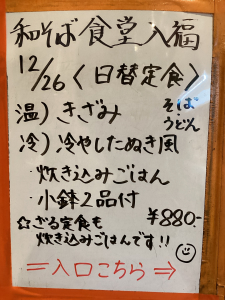 和そば食堂入福
12/26〈日替定食〉
温）きざみ そば
うどん
冷）冷やしたぬき風
炊き込みごはん
小鉢2品付
¥880-
☆ざる定食も
炊き込みごはんです!!
⇒入口こちら⇒